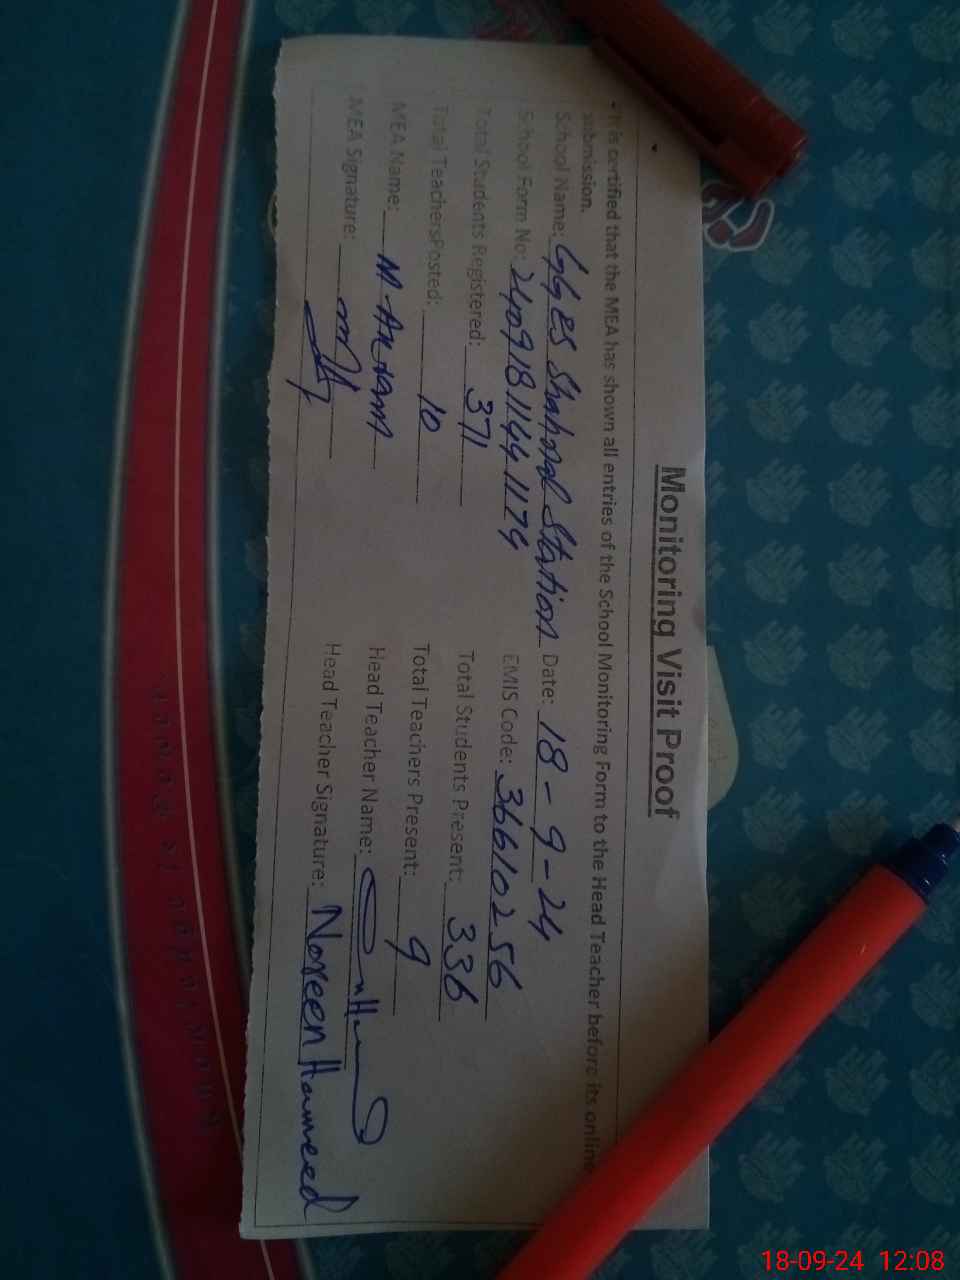 Monitoring Visit Proof
• It is certified that the MEA has shown all entries of the School Monitoring Form to the Head Teacher before its online
submission.
School Name: GGES Shahnal Station Date: 18-9-24
School Form No: 24091811441179 EMIS Code: 36610256
Total Students Registered: 371 Total Students Present: 336
Total TeachersPosted: 10 Total Teachers Present: 9
MEA Name: M. Akram Head Teacher Name:
MEA Signature: Head Teacher Signature: Noreen Hameed
18-09-24 12:08